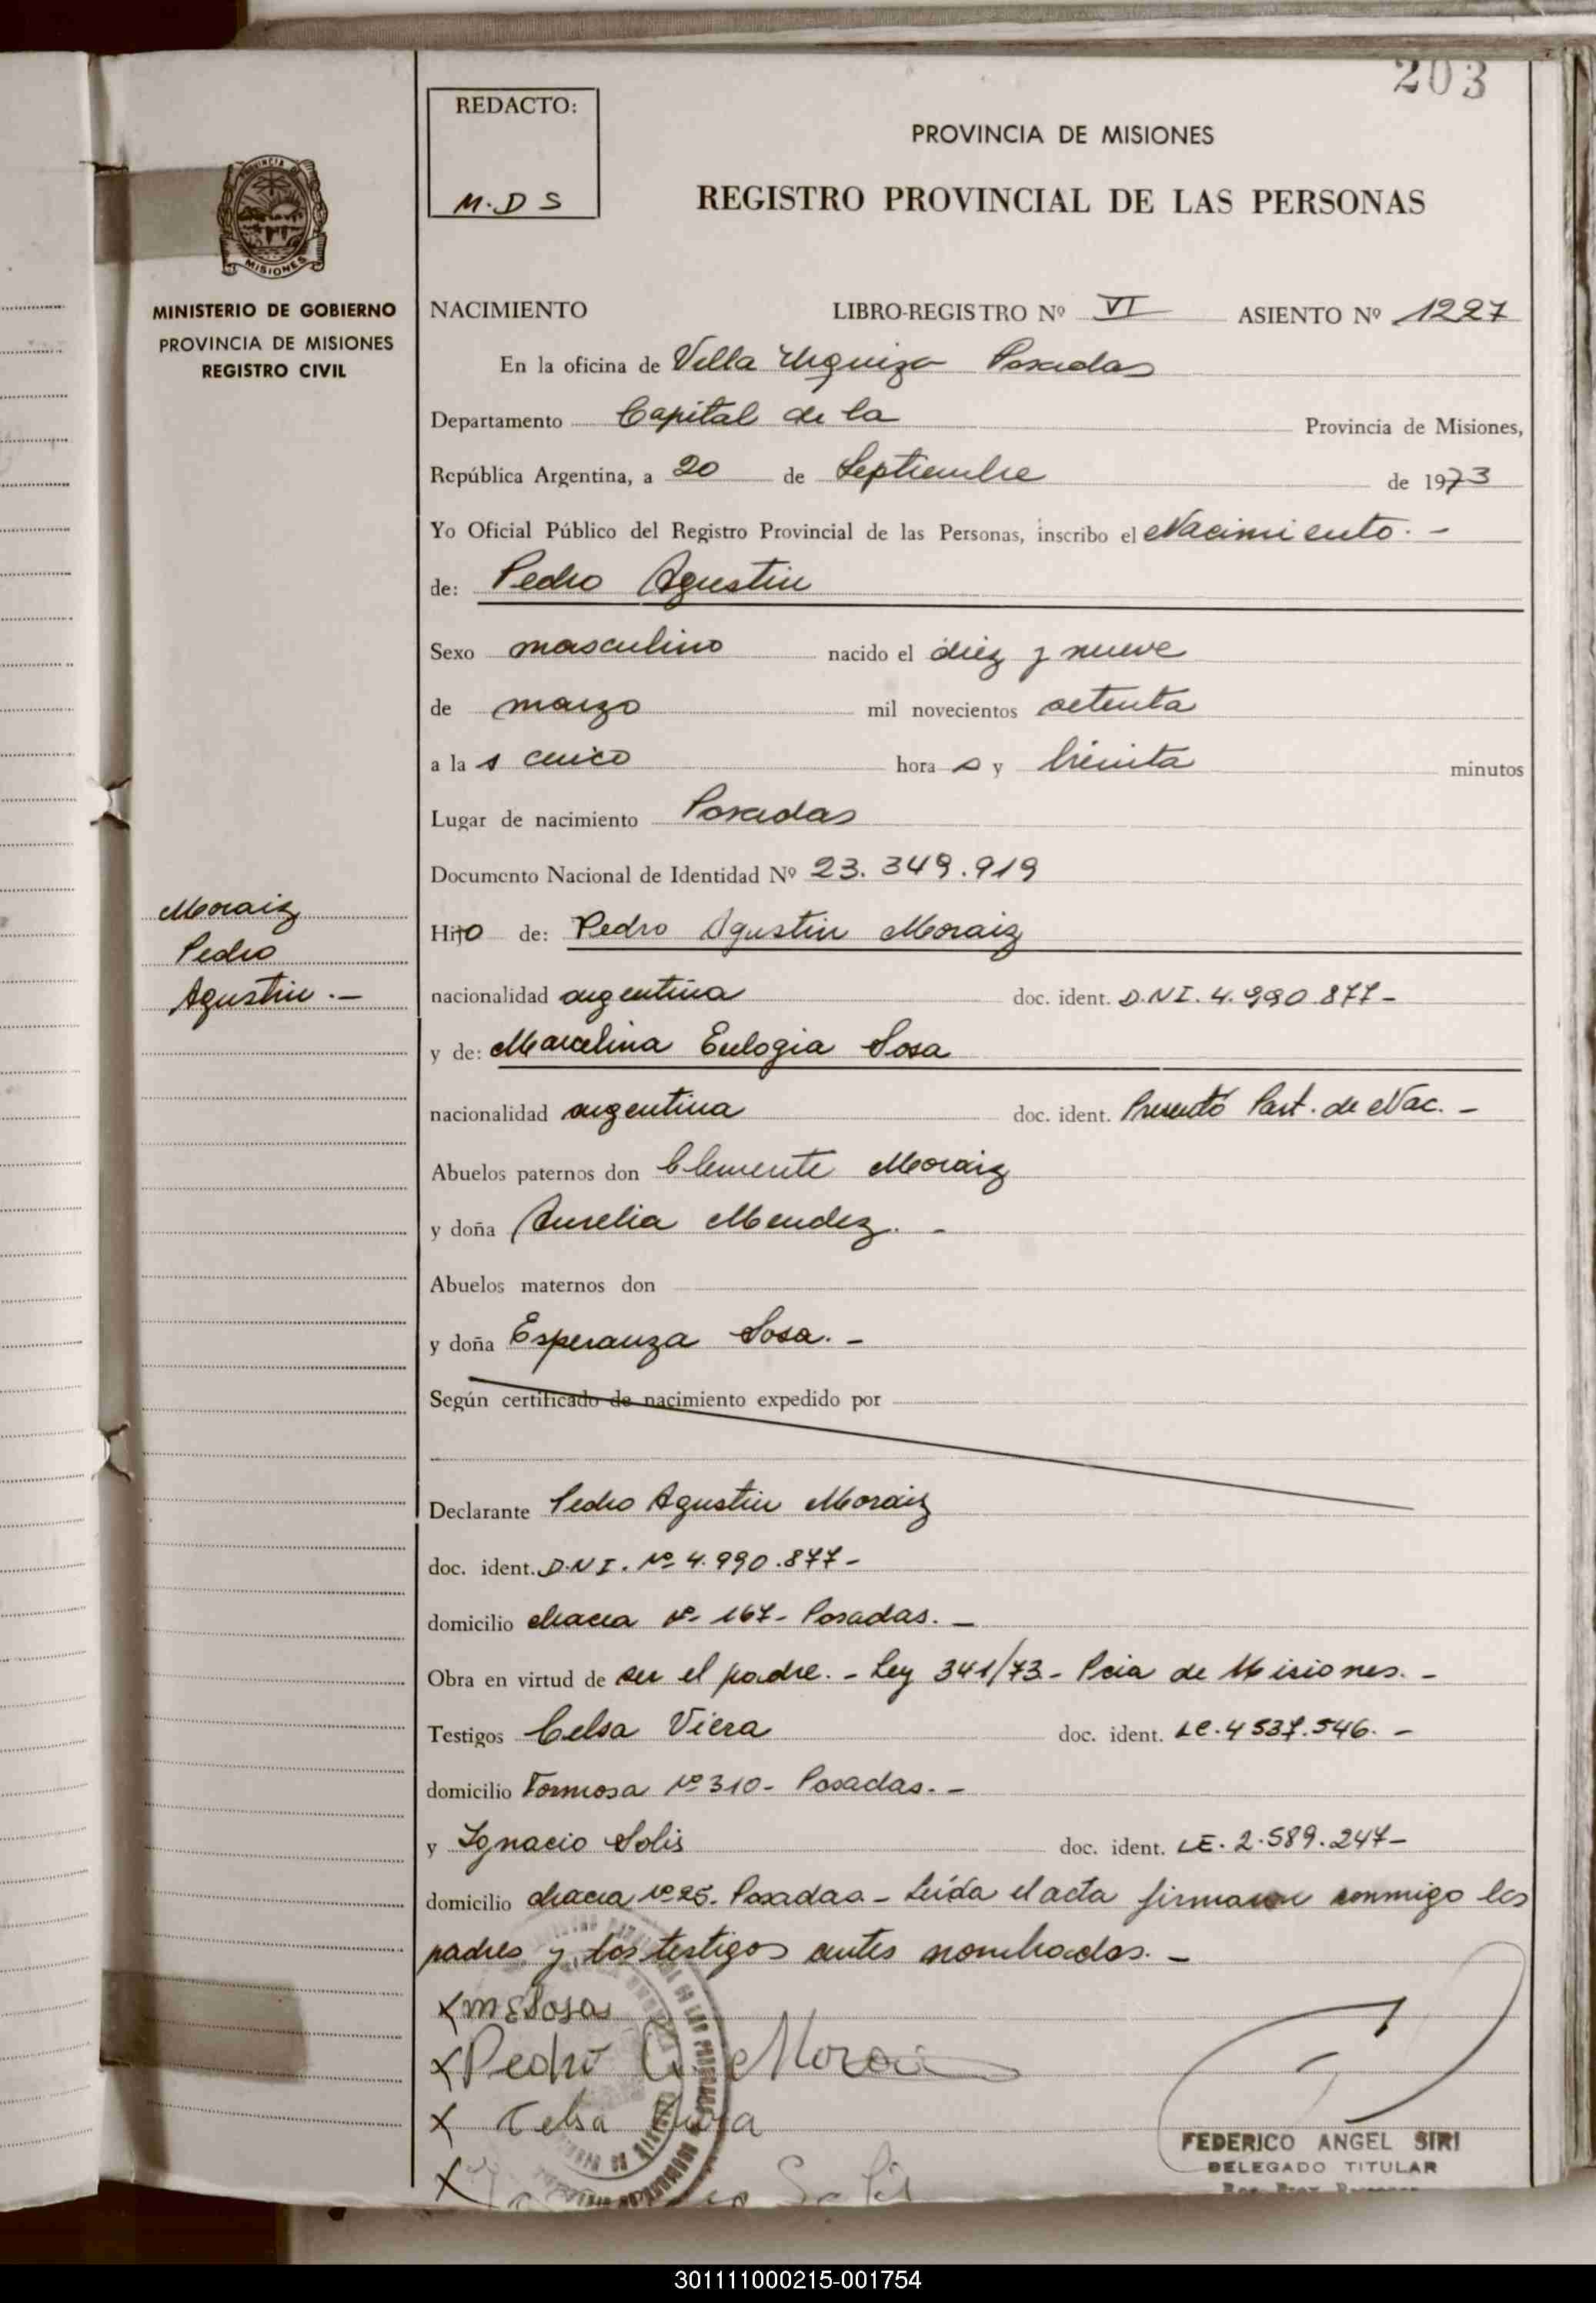 203
REDACTO:
M.D S
PROVINCIA DE MISIONES
REGISTRO PROVINCIAL DE LAS PERSONAS
PROVINCIA
MISIONES
MINISTERIO DE GOBIERNO
PROVINCIA DE MISIONES
REGISTRO CIVIL
NACIMIENTO LIBRO-REGISTRO Nº VI ASIENTO Nº 1227
En la oficina de Villa Urquiza Posadas
Departamento Capital de la Provincia de Misiones,
República Argentina, a 20 de Septiembre de 1973
Yo Oficial Público del Registro Provincial de las Personas, inscribo el Nacimiento. -
de: Pedro Agustin
Sexo masculino nacido el diez y nueve
de marzo mil novecientos setenta
a la s cinco hora s y treinta minutos
Lugar de nacimiento Posadas
Documento Nacional de Identidad Nº 23.349.919
Moraiz
Pedro
Agustin.-
Hijo de: Pedro Agustin Moraiz
nacionalidad argentina doc. ident. D.N.I. 4.990.877-
y de: Marcelina Eulogia Sosa
nacionalidad argentina doc. ident. Presentó Part. de Nac. -
Abuelos paternos don Clemente Moraiz
y doña Aurelia Mendez. -
Abuelos maternos don
y doña Esperanza Sosa. -
Según certificado de nacimiento expedido por
Declarante Pedro Agustin Moraiz
doc. ident. D.N.I. Nº 4.990.877-
domicilio chacra Nº 167- Posadas. -
Obra en virtud de ser el padre. - Ley 341/73- Pcia de Misiones. -
Testigos Celsa Viera doc. ident. LC. 4537.546. -
domicilio Formosa Nº 310- Posadas. -
y Ignacio Solis doc. ident. LE. 2.589.247-
domicilio chacra Nº 25. Posadas - Leída el acta firman conmigo los
padres y los testigos antes nombrados. -
X M E Sosa
X Pedro A. Morais
X Celsa Viera
X
FEDERICO ANGEL SIRI
DELEGADO TITULAR
301111000215-001754